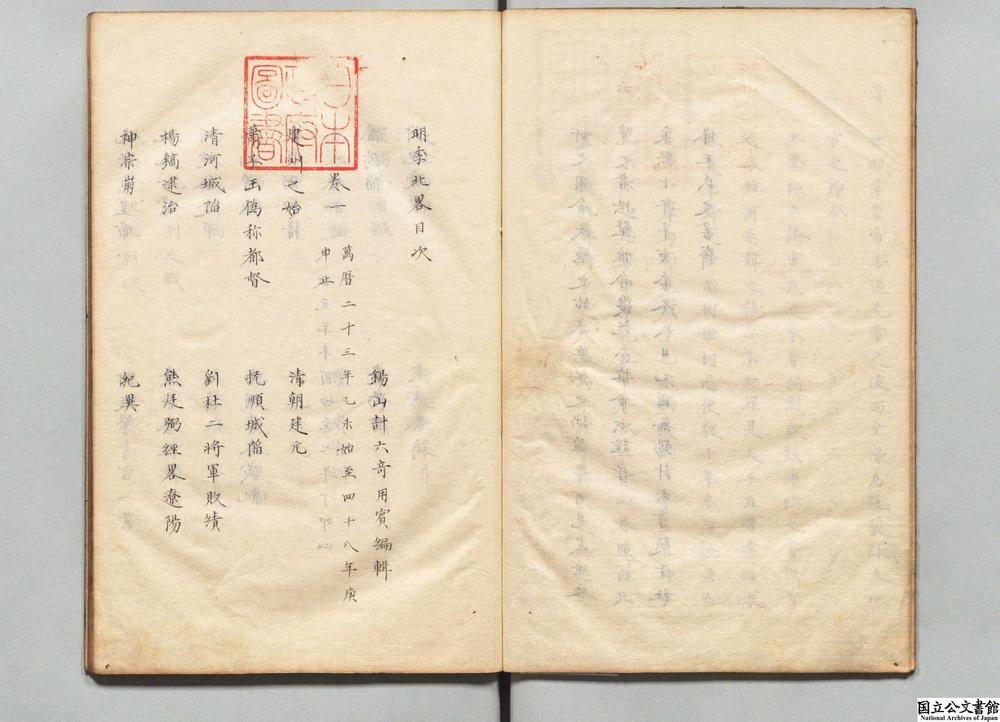 明季北畧目次
錫山計六竒用賓編輯
卷一 萬曆二十三年乙未始至四十八年庚
申止
建州之始 清朝建元
王偽称都督 抚順城陷
清河城陷 劉杜二将軍敗績
楊鎬逮治 熊廷弼經畧遼陽
神宗崩 紀異
日本
政府
圖書
国立公文書館
National Archives of Japan